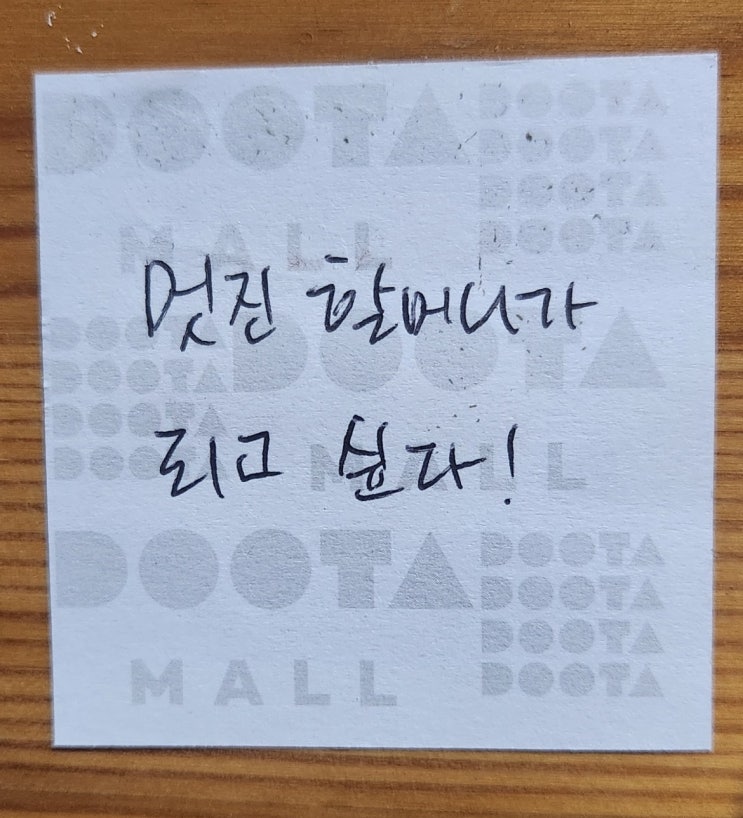 DOOTA
DOOTA
DOOTA
DOOTA
DOOTA
MALL
멋진 할머니가
DOOTA
DOOTA
DOOTA
DOOTA
DOOTA
되고 싶다!
MALL
DOOTA
DOOTA
DOOTA
DOOTA
DOOTA
MALL